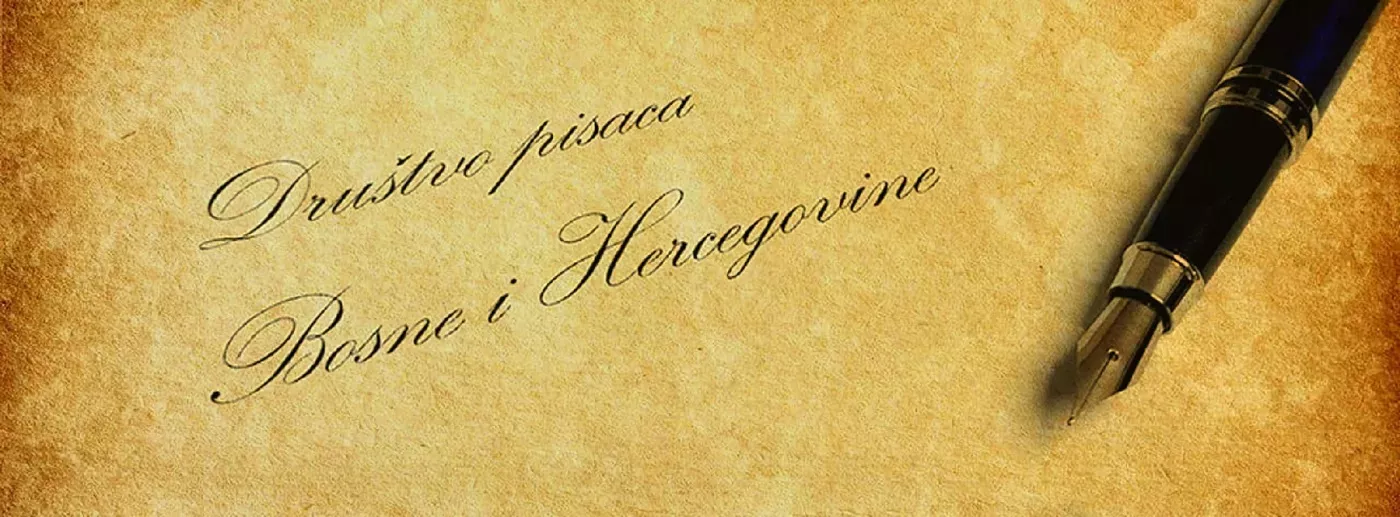 Društvo pisaca
Bosne i Hercegovine